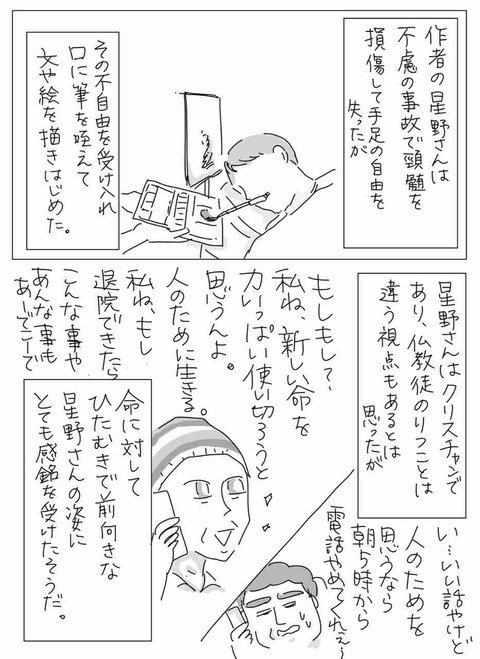 作者の星野さんは
不慮の事故で頸髄を
損傷して手足の自由を
失ったが
その不自由を受け入れ
口に筆を咥えて
文や絵を描きはじめた。
星野さんはクリスチャンで
あり、仏教徒のりつことは
違う視点もあるとは
思ったが
もしもし?
私ね、新しい命を
力いっぱい使い切ろうと
思うんよ。
人のために生きる。
私ね、もし
退院できたら
こんな事や
あんな事も
あーでこーで
命に対して
ひたむきで前向きな
星野さんの姿に
とても感銘を受けたそうだ。
い…いい話やけど
人のためを
思うなら
朝5時から
電話やめてくれぇ~